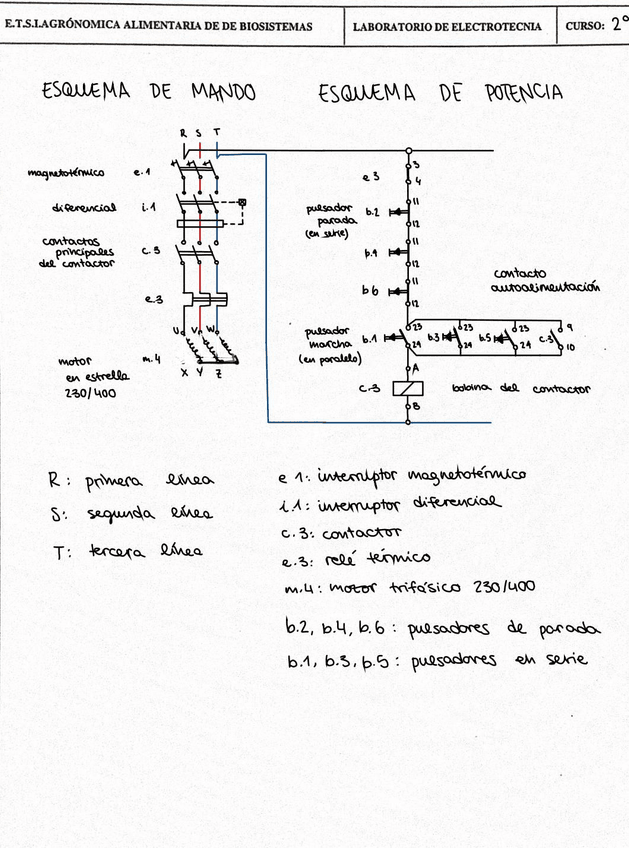 E.T.S.I.AGRÓNOMICA ALIMENTARIA DE DE BIOSISTEMAS
LABORATORIO DE ELECTROTECNIA
CURSO: 2º
ESQUEMA DE MANDO
ESQUEMA DE POTENCIA
R S T
magnetotérmico e.1
diferencial i.1
contactos
principales
del contactor
c.3
e.3
U V W
motor
en estrella
230/400
m.4
X Y Z
e 3
3
4
pulsador
parada
(en serie)
b.2
11
12
b.4
11
12
b 6
11
12
contacto
autoalimentación
pulsador
marcha
(en paralelo)
b.1
23
24
b.3
23
24
b.5
23
24
c.3
9
10
A
c.3
bobina del contactor
B
R: primera línea
S: segunda línea
T: tercera línea
e 1: interruptor magnetotérmico
i.1: interruptor diferencial
c.3: contactor
e.3: relé térmico
m.4: motor trifásico 230/400
b.2, b.4, b.6: pulsadores de parada
b.1, b.3, b.5: pulsadores en serie